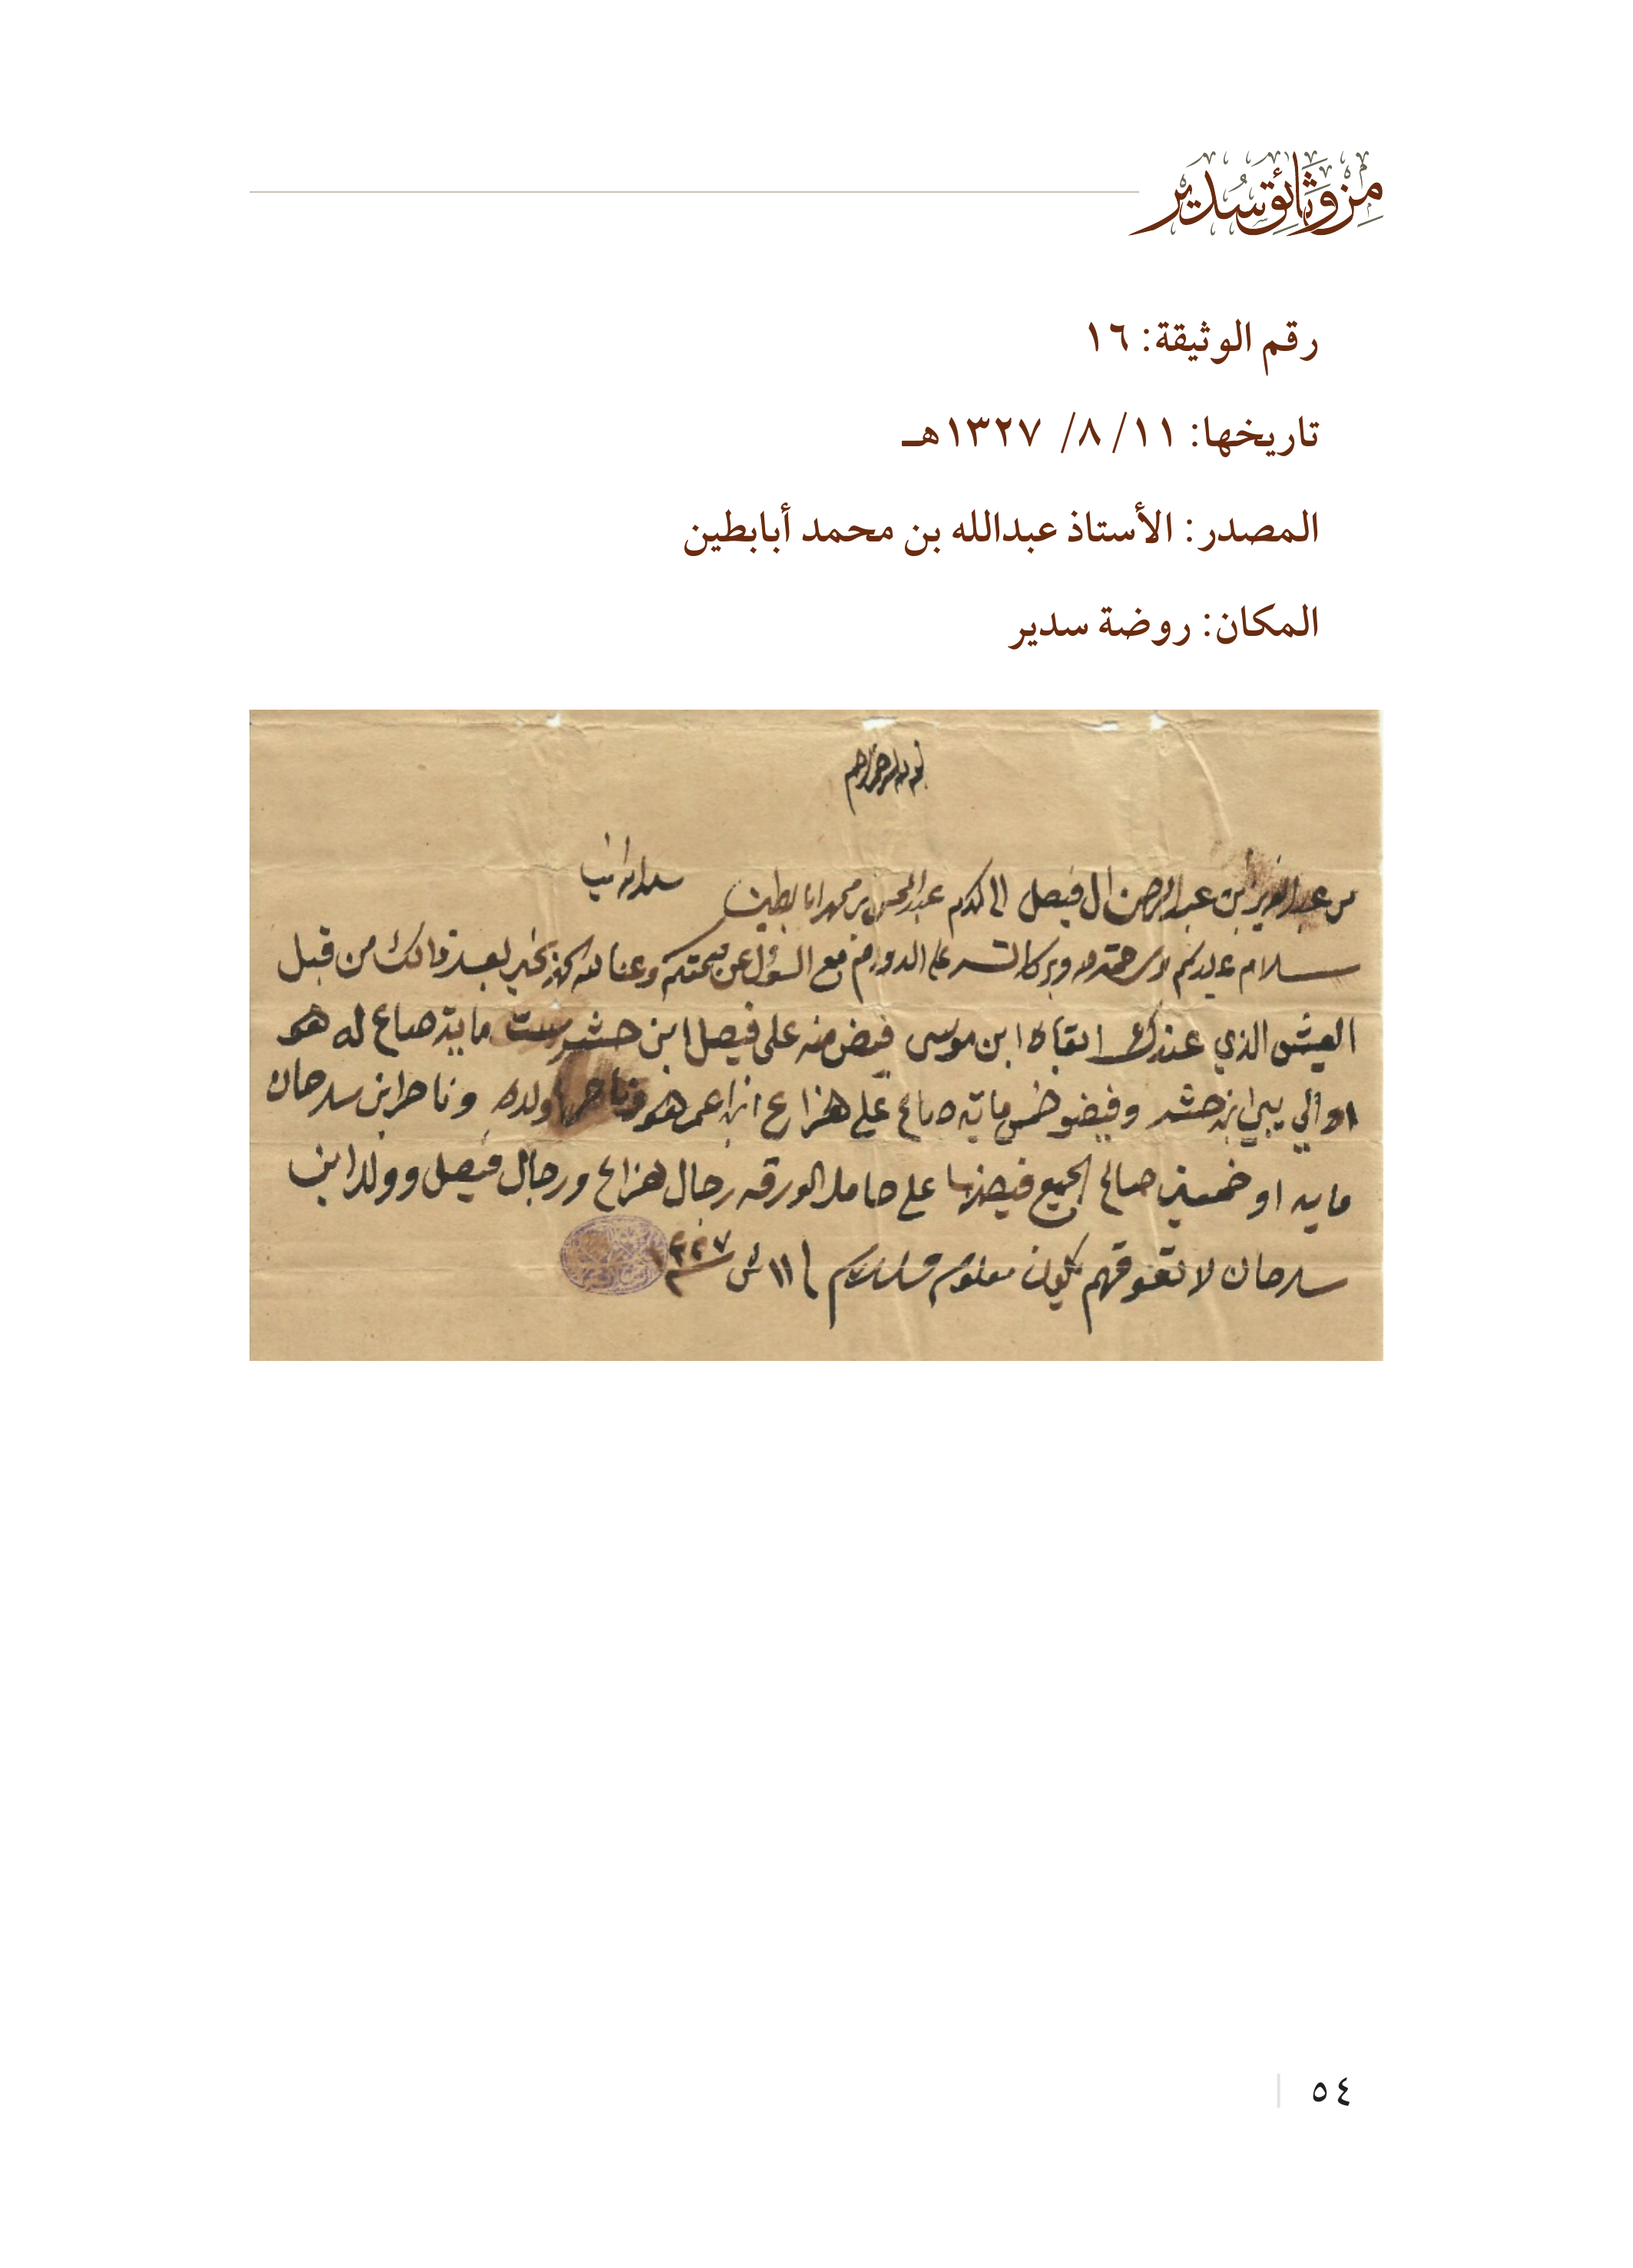 من وثائق سدير
رقم الوثيقة: ١٦
تاريخها: ١١ /٨ / ١٣٢٧هـ
المصدر: الأستاذ عبدالله بن محمد أبابطين
المكان: روضة سدير
بسم الله الرحمن الرحيم
من عبد العزيز ابن عبد الرحمن ال فيصل الى المكرم عبد المحسن بن محمد ابا بطين سلمه الله
سلام عليكم ورحمة الله وبركاته على الدوام مع السؤل عن صحتكم وحنا لله الحمد بخير بعد ذالك من قبل
العيش الذي عندك ابن موسى فيض منه على فيصل ابن حشر ست ماية صاع له هو
ابن حشر وفيضو خمس ماية صاع على هزاع هو ولده وناصر ابن سرحان
مايه او خمسين صاع الجميع فيضها على حامل الورقه رجال هزاع ورجال فيصل وولد ابن
سرحان لا تعوقهم يكون معلوم والسلام ١١ ش ١٣٢٧
٥٤